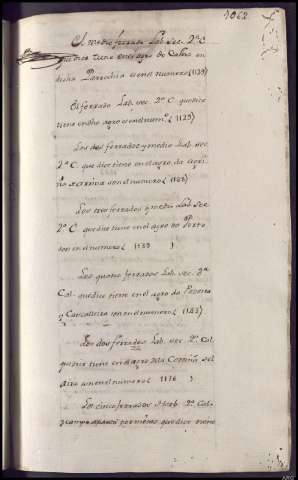 1062.
El medio ferrado Lab. sec. 2ª C
que dice tiene en el agro de Cabo en
dicha Parrochia es en el numero (1139)
El ferrado Lab. sec. 2ª C. que dice
tiene en dho agro es en el num.º (1125)
Los dos ferrados y medio Lab. sec.
2ª C. que dice tiene en el agro de
arriva son en el numero (1128)
Los tres ferrados y medio Lab. sec
2ª C que dice tiene en el agro do Porto
son en el numero ( 1133 )
Los quatro ferrados Lab. sec. 2ª
Cal. que dice tiene en el agro da Pereira
y Carcabeira son en el numero (1123)
Los dos ferrados Lab. sec. 2ª Cal.
que dice tiene en el agro dela Cortiña del
Agro son en el numero ( 1116 )
Los cinco ferrados 2ª Cal.
y campo aparte por menos, que dice tiene